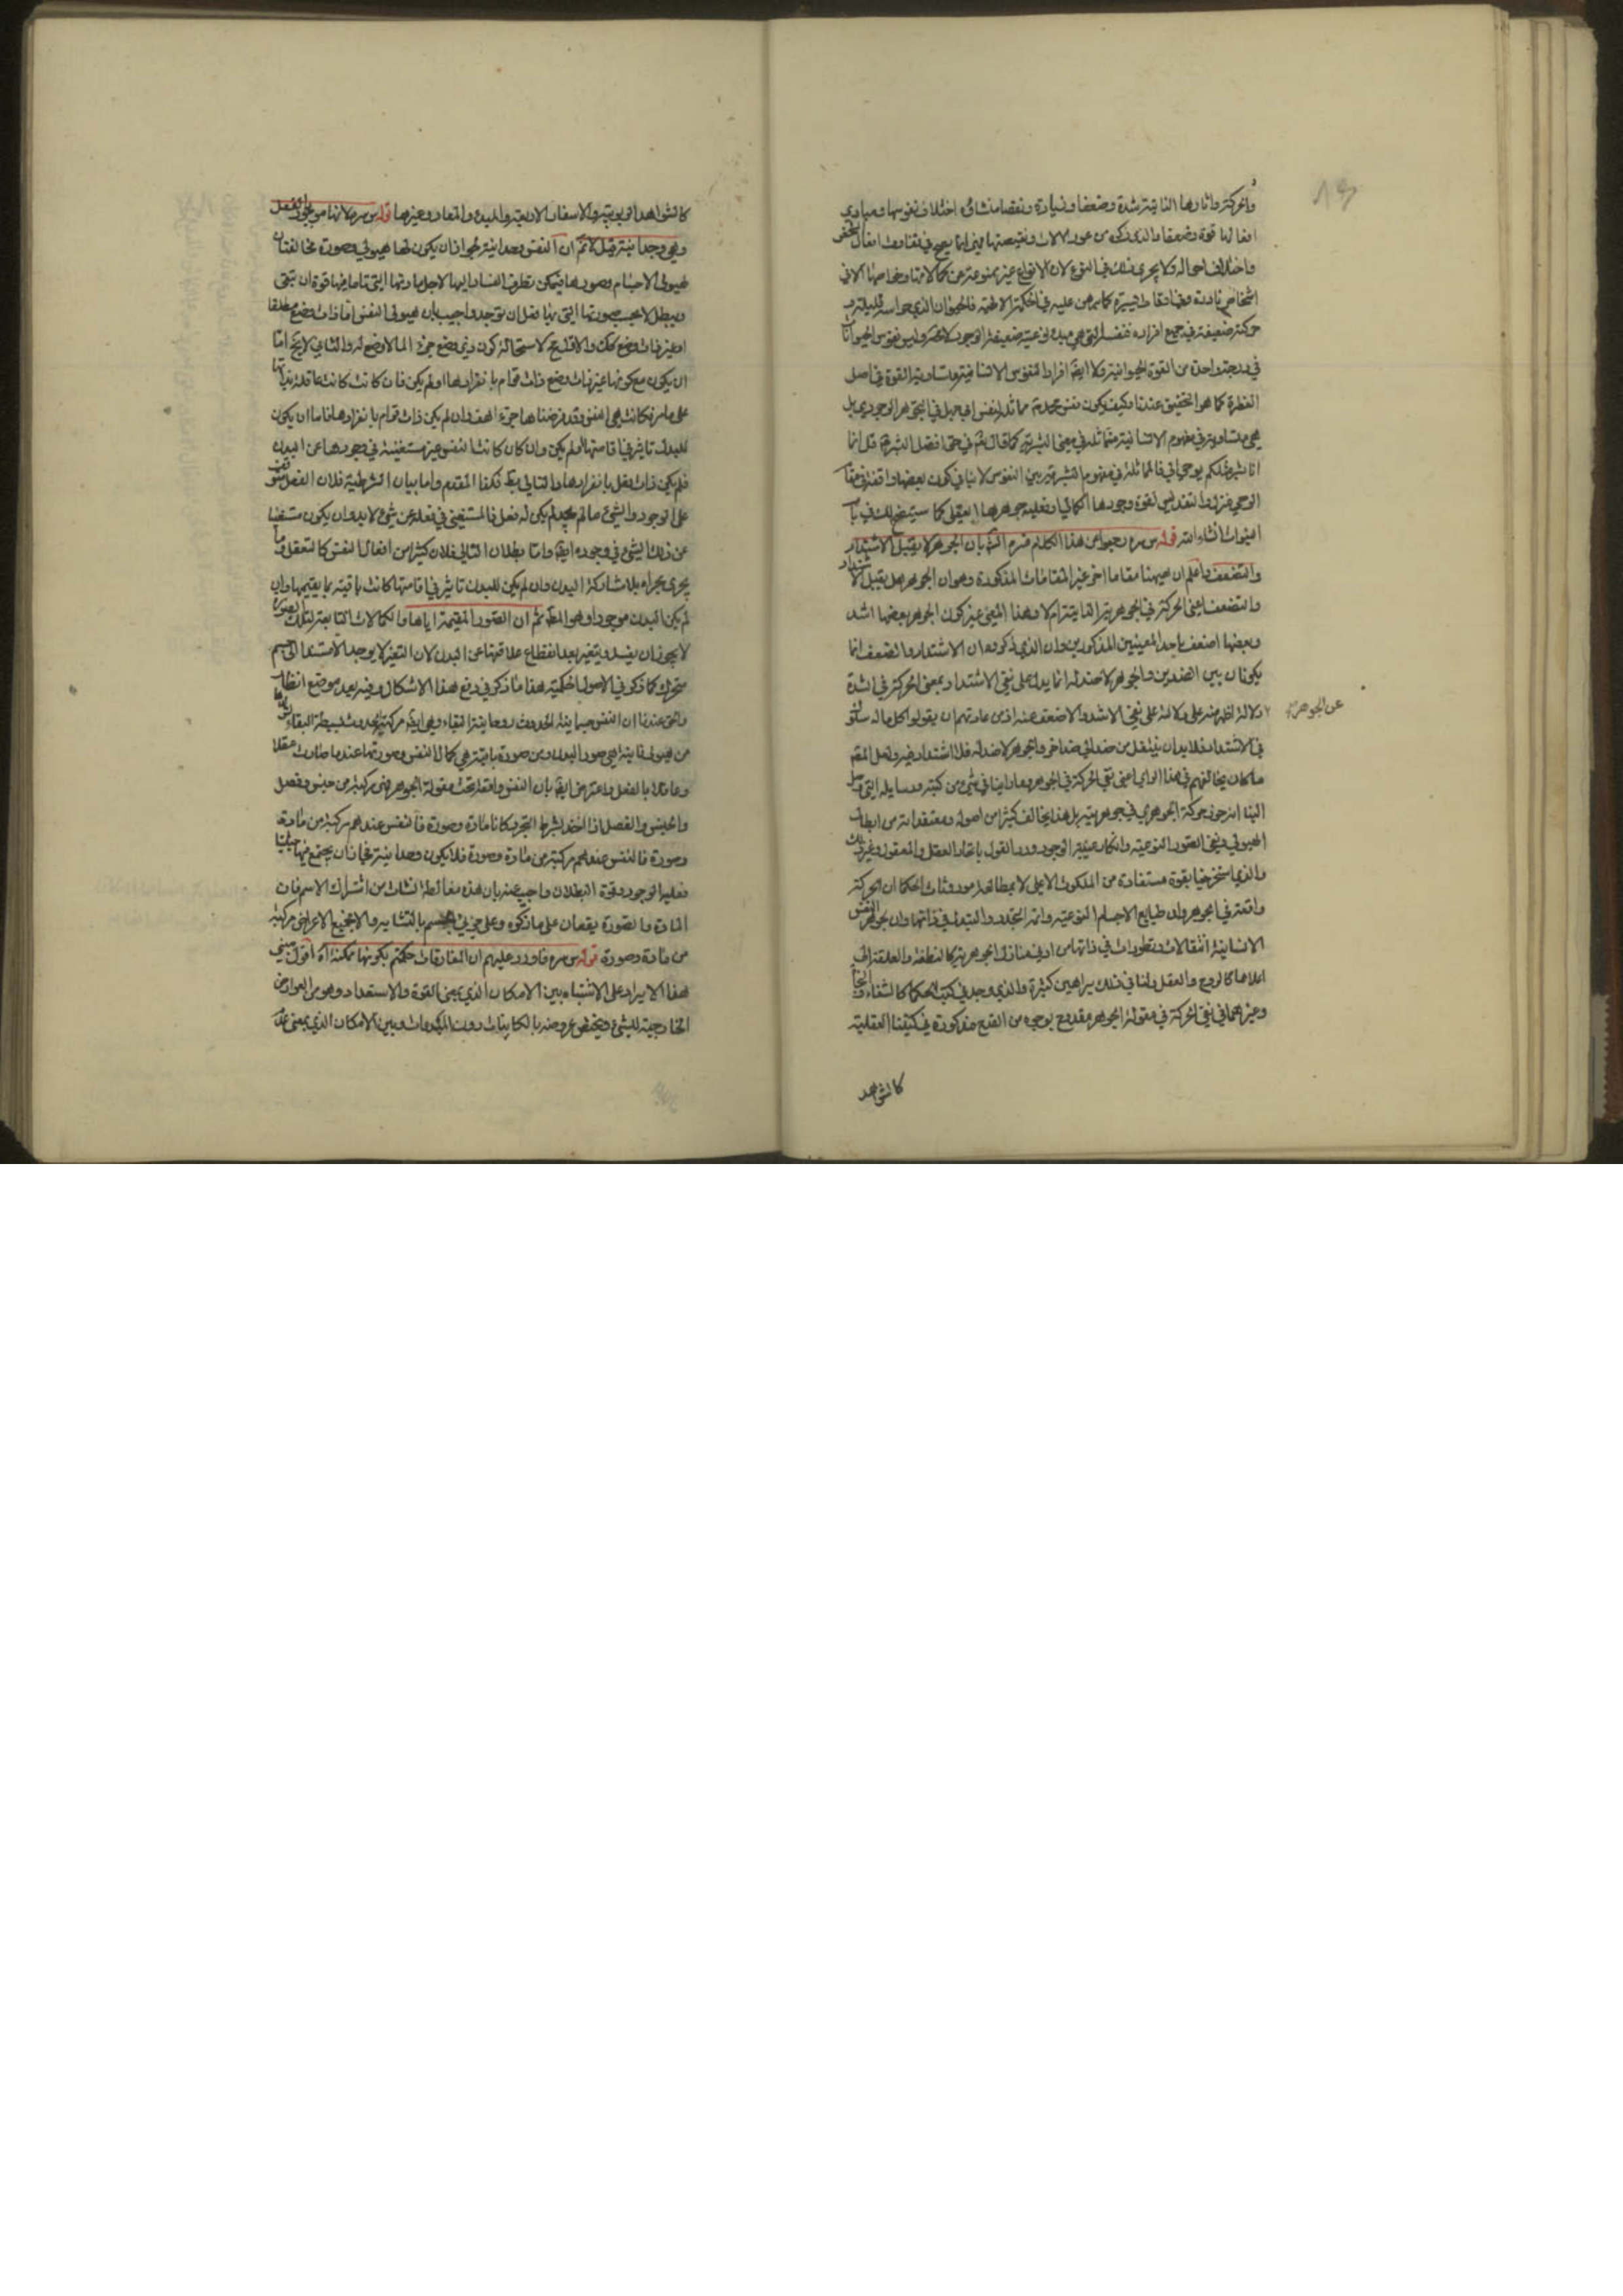 واعر كثر واثارها الذاتية شدة وضعفا وزيادة ونقصا منشاؤه اختلاف نفوسها ومبادي
افعالها قوة وضعفا والذي ذكره من عود الالات ونقيصتها فهي انما يصح في تفاوت افعال شخص
واختلاف احواله ولا يجري ذلك في النوع لان الانواع غير ممنوعة عن كمالاتها وخواصها الا في
اشخاص نادرة وفي اوقات يسيرة كما برهن عليه في الحكمة الالهية فالحيوان الذي حواسه قليلة و
حركته ضعيفة في جميع افراده فنفسه التي هي مبدء نوعيته ضعيفة الوجود لا محة وليس نفوس الحيوانات
في درجة واحدة من القوة الحيوانية ولا ايضا افراد النفوس الانسانية متساوية القوة في اصل
الفطرة كما هو التحقيق عندنا وكيف يكون نفس محمد ص مماثلة لنفس ابي جهل في التجوهر الوجودي بل
هي متساوية في مفهوم الانسانية متماثلة في معنى البشرية كما قال تع في حق افضل البشر ص قل انما
انا بشر مثلكم يوحى الي فالمماثلة في مفهوم البشرية بين النفوس لا ينافي كون بعضها واقفة في مقام
الوحي عنزل والتقديس لقوة وجودها الكمالي وفعلية جوهرها العقلي كما سيتضح لك في باب
النبوات انشاء الله قوله س سره يجوا عن هذا الكلام فنزه الش بان الجوهر لا يقبل الاشتداد
والتضعف واعلم ان ههنا مقاما اخر غير المقامات المذكورة وهو ان الجوهر هل يقبل الاشتداد
والتضعف يعني الحركة في الجوهرية الذاتية ام لا وهذا المعنى غير كون الجوهر بعضها اشد
وبعضها اضعف باحد المعنيين المذكورين وان الذي ذكروه ان الاشتداد والضعف انما
يكونان بين الضدين والجوهر لا ضد له انما يدل على نفي الاشتداد بمعنى الحركة في الشدة
دلالة اظهر منه على دلالة على نفي الاشد والاضعف عنه اذ من عادتهم ان يقولوا كل ما له سلوك
عن الجوهر
في الاشتداد فلا بد ان ينتقل من ضد الى ضد اخر والجوهر لا ضد له فلا اشتداد فيه ولعل المصه
ما كان يخالفهم في هذا الراي اعني نفي الحركة في الجوهر وما راينا في شيء من كتبه ورسايله التي وصل
الينا انه جوز حركة الجوهري في جوهريته بل هذا يخالف كثيرا من اصوله ومعتقداته من ابطال
الهيولي ونفي الصور النوعية وانكار عينية الوجود ورد القول باتحاد العقل والمعقول وغير ذلك
والذي استخرجنا بقوة مستفادة من الملكوت الاعلى لا بمطالعة موروثات الحكماء ان الحركة
واقعة في الجوهر وان طبايع الاجسام النوعية دائمة التجدد والتبدل في ذاتها وان لجوهر النفس
الانسانية انتقالات وتطورات في ذاتها من ادنى منازل الجوهرية كالنطفة والعلقة الى
اعلاها كالروح والعقل ولنا في ذلك براهين كثيرة والذي وجد في كتب الحكماء كالشفاء والنجاة
وغيرهما في نفي الحركة في مقولة الجوهر مقدوح بوجوه من القدح مذكورة في كتبنا العقلية
كالشواهد
كالشواهد الربوبية والاسفار الاربعة والمبدء والمعاد وغيرها قوله س سره لانها موجودة بالفعل
وهي وحدانية قيل لا ثم ان النفس وحدانية لجواز ان يكون لها هيولي وصورة مخالفتان
لهيولى الاجسام وصورها فيمكن تطرق الفساد اليها لاجل مادتها التي تقام فيها قوة ان تبقى
ويبطل لا بحسب صورتها التي بها فعل ان توجد واجيب بان هيولى النفس اما ذات وضع مطلقا
او غير ذات وضع كك والاول مح لاستحالة كون ذي وضع جزء المالا وضع له والثاني لا يخ اما
ان يكون مع كونها غير ذات وضع ذات قوام بانفرادها او لم يكن فان كانت كانت عاقلة بذاتها
على ما مر فكانت هي النفس وقد فرضناها جزء هف وان لم يكن ذات قوام بانفرادها فاما ان يكون
للبدن تاثير في اقامتها او لم يكن وان كان كانت النفس غير مستغنية في وجودها عن البدن
فلم يكن ذات فعل بانفرادها والتالي بط فكذا المقدم واما بيان الشرطية فلان الفعل متوقف
على الوجود والشيء ما لم يوجد لم يكن له فعل فالمستغني في فعله عن شيء لا بد وان يكون مستغنيا
عن ذلك الشيء في وجوده ايضا واما بطلان التالي فلان كثيرا من افعال النفس كالتعقل وما
يجري مجراه بلا مشاركة البدن وان لم يكن للبدن تاثير في اقامتها كانت باقية بما يقيمها وان
لم يكن البدن موجودا وهو المط ثم ان الصور المقيمة اياها والكمالات التابعة لتلك الصورة
لا يجوز ان يفسد ويتغير بعد انقطاع علاقتها عن البدن لان التغير لا يوجد الا مستندا الى جسم
متحرك كما ذكر في الاصول الحكمية هذا ما ذكر في دفع هذا الاشكال وفيه بعد موضع انظار
والحق عندنا ان النفس جسمانية الحدوث روحانية البقاء وهي ايضا مركبة الحدوث بسيطة البقاء
من هيولى فانية هي صور البدن ومن صورة باقية هي كمال النفس وصورتها عندما صارت عقلا
وعاقلا بالفعل واعترض ايضا بان النفس واقعة تحت مقولة الجوهر فهي مركبة من جنس وفصل
والجنس والفصل اذا اخذا بشرط التجرد كانا مادة وصورة فالنفس عندهم مركبة من مادة
وصورة فالنفس عندهم مركبة من مادة وصورة فلا يكون وحدانية فجاز ان يجتمع فيها حيثيتا
فعلية الوجود وقوة البطلان واجيب عنه بان هذه مغالطة نشات من اشتراك الاسم فان
المادة والصورة يقعان على ما ذكره وعلى جزئي الجسم بالتشابه والا فجميع الاعراض مركبة
من مادة وصورة قوله س سره فاورد عليهم ان المفارقات حكمتم بكونها ممكنة اه اقول مبنى
هذا الايراد على الاشتباه بين الامكان الذي بمعنى القوة والاستعداد وهو من العوارض
الخارجية للشيء ويختص عروضه بالكاينات دون المبدعات وبين الامكان الذي بمعنى عدم